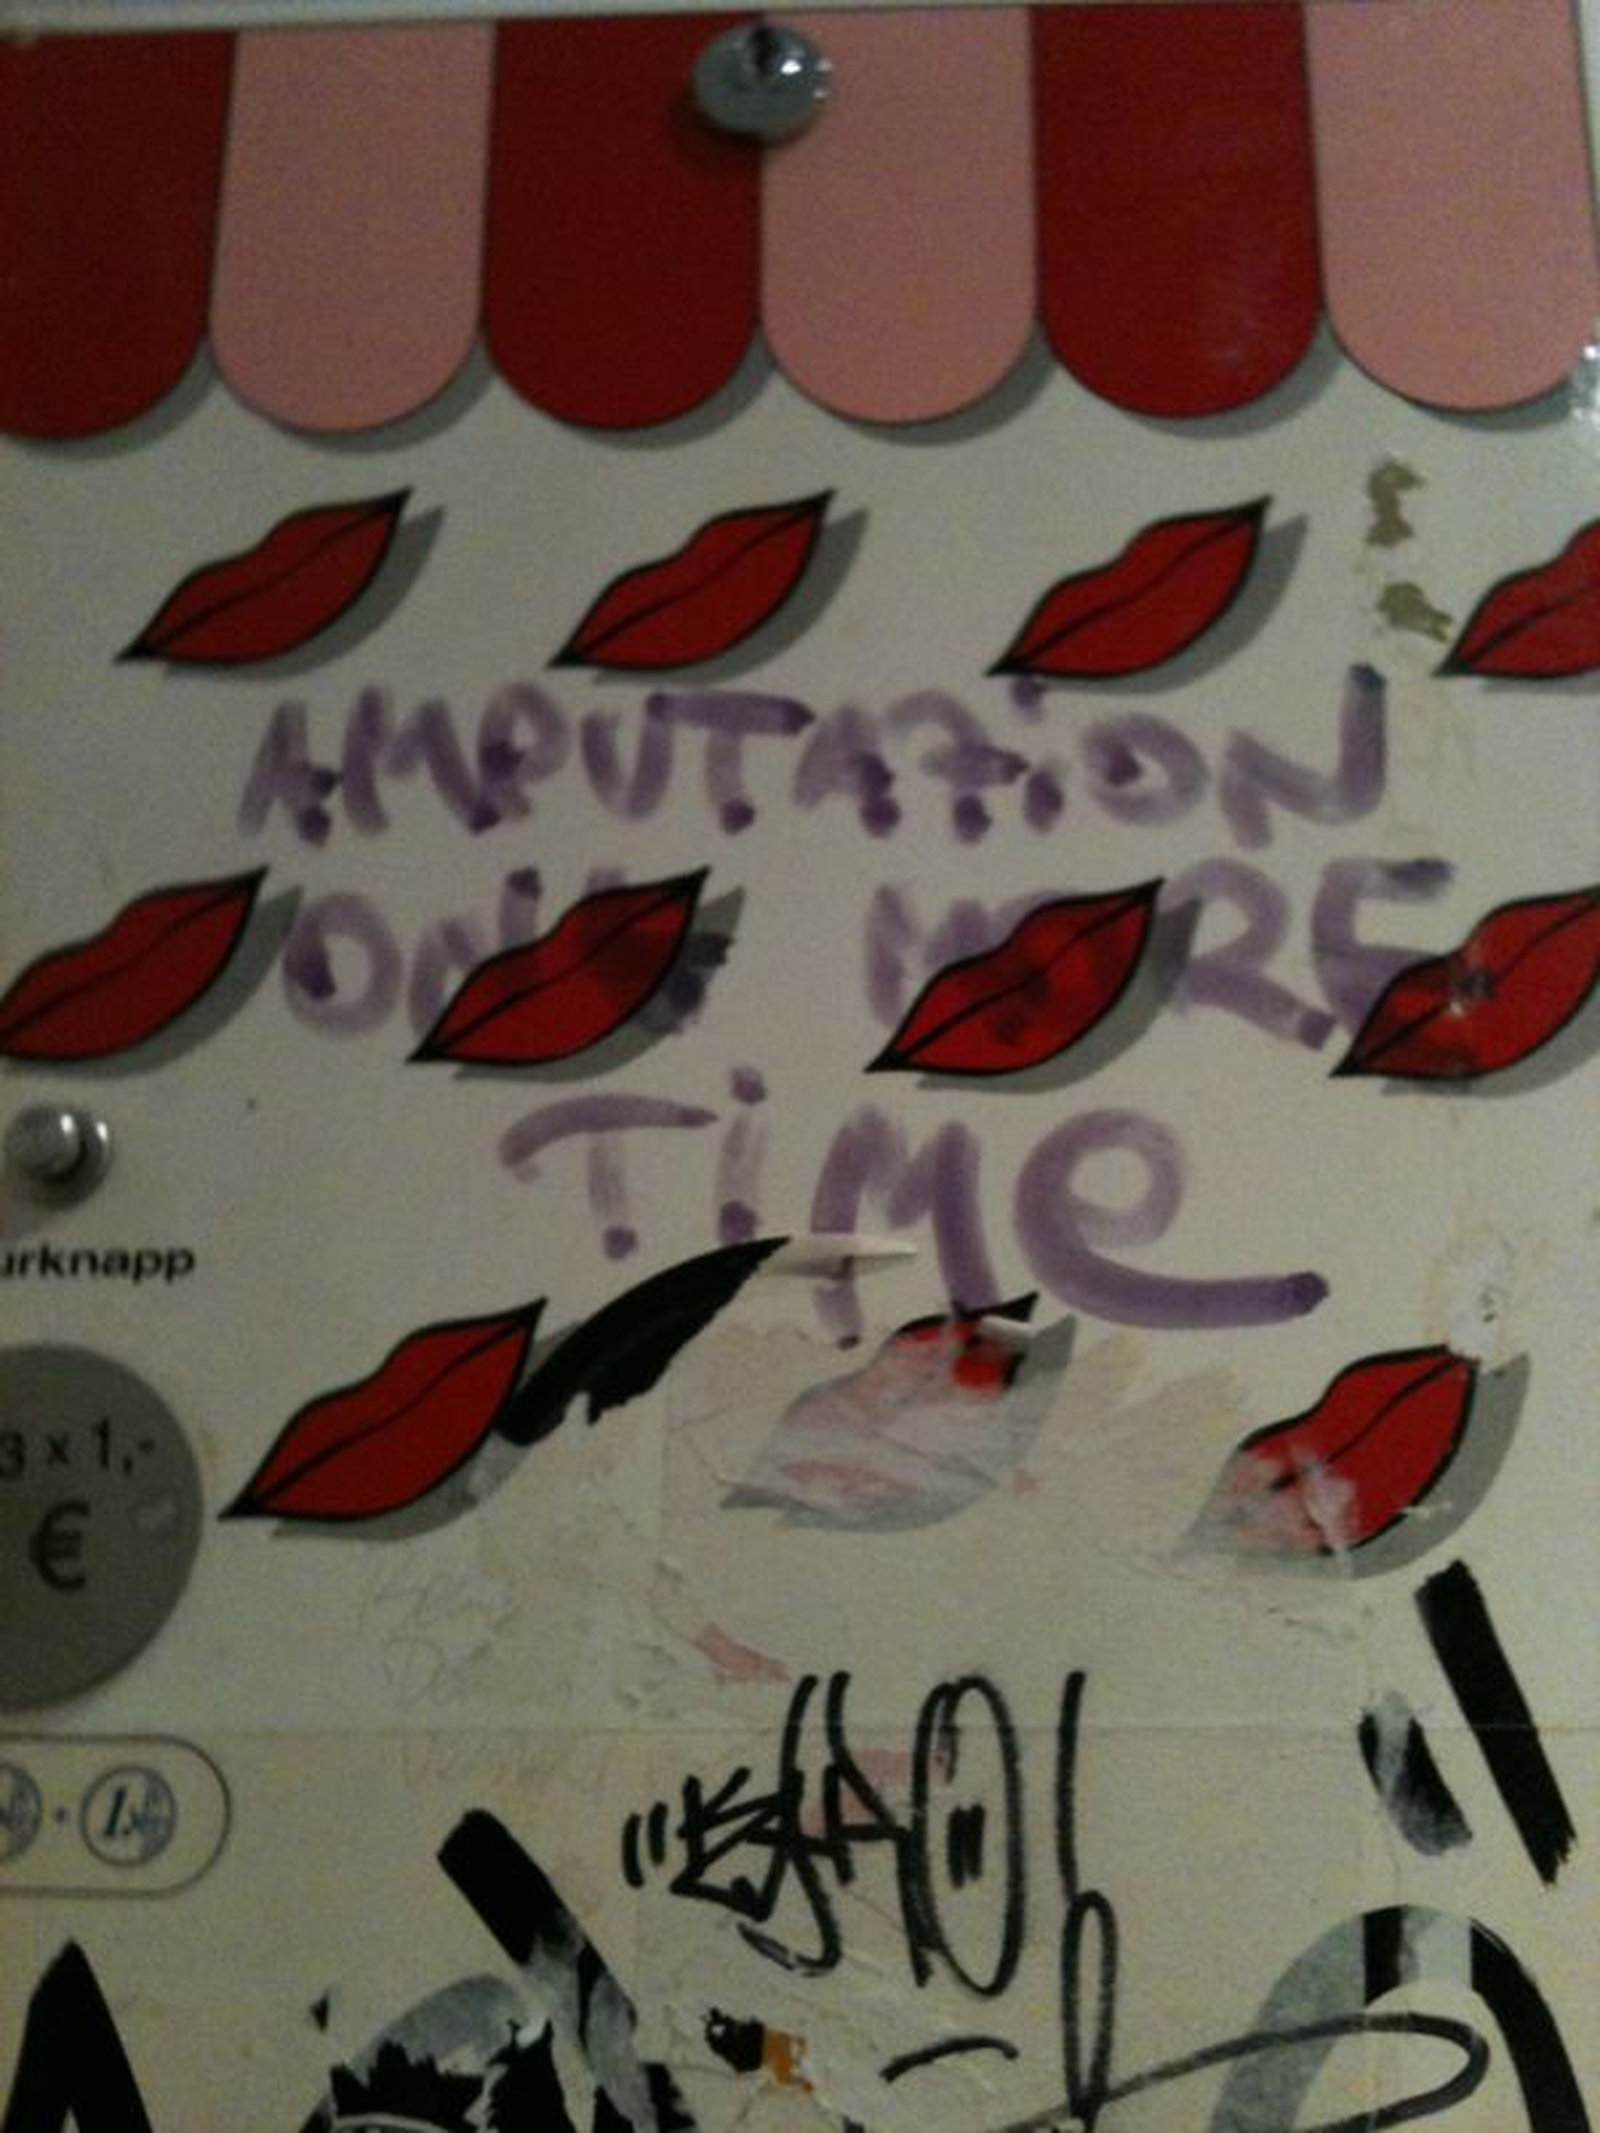 AMPUTATiON
ONE MORE
TiMe
urknapp
3 x 1,-
€